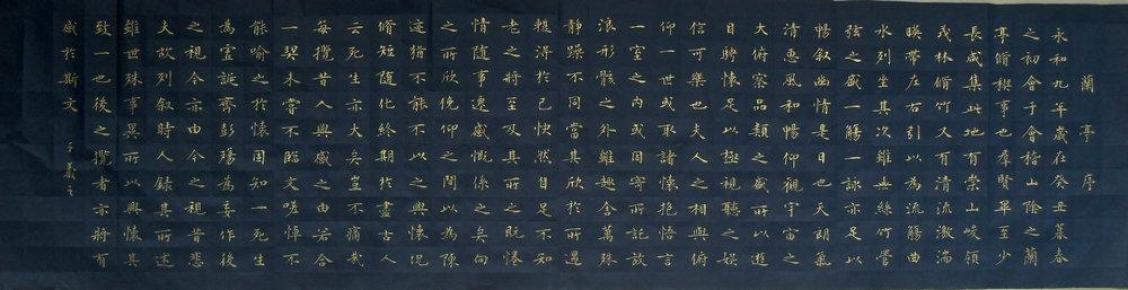 蘭亭序
永和九年歲在癸丑暮春
之初會于會稽山陰之蘭
亭脩稧事也羣賢畢至少
長咸集此地有崇山峻領
茂林脩竹又有清流激湍
暎帶左右引以為流觴曲
水列坐其次雖無絲竹管
弦之盛一觴一詠亦足以
暢叙幽情是日也天朗氣
清惠風和暢仰觀宇宙之
大俯察品類之盛所以遊
目騁懷足以極視聽之娛
信可樂也夫人之相與俯
仰一世或取諸懷抱悟言
一室之內或因寄所託放
浪形骸之外雖趣舍萬殊
靜躁不同當其欣於所遇
暫得於己怏然自足不知
老之將至及其所之既惓
情隨事遷感慨係之矣向
之所欣俛仰之閒以為陳
迹猶不能不以之興懷況
脩短隨化終期於盡古人
云死生亦大矣豈不痛哉
每攬昔人興感之由若合
一契未嘗不臨文嗟悼不
能喻之於懷固知一死生
為虛誕齊彭殤為妄作後
之視今亦由今之視昔悲
夫故列叙時人錄其所述
雖世殊事異所以興懷其
致一也後之攬者亦將有
感於斯文
王羲之